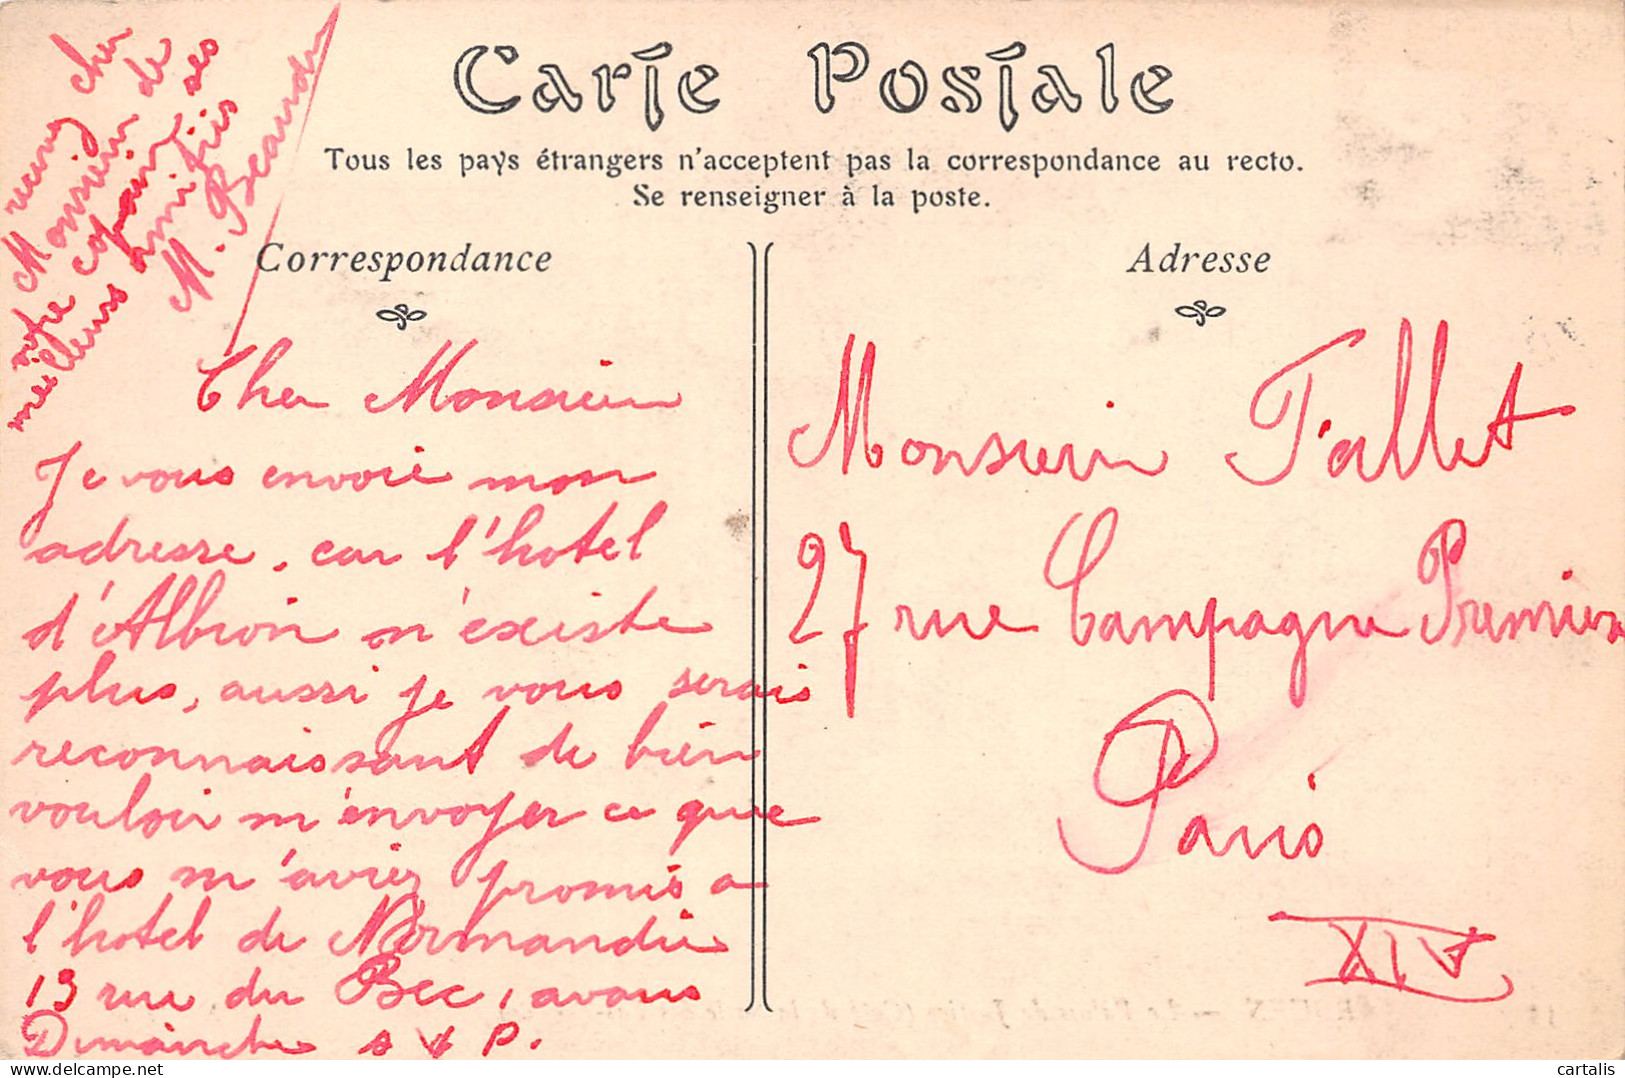 Carte Postale
Tous les pays étrangers n'acceptent pas la correspondance au recto.
Se renseigner à la poste.
Correspondance
Adresse
Cher Monsieur
Je vous envoie mon
adresse, car l'hotel
d'Albion n'existe
plus, aussi je vous serais
reconnaissant de bien
vouloir m'envoyer ce que
vous m'aviez promis a
l'hotel de Normandie
13 rue du Bec, avans
Dimanche s v P.
recevez cher
Monsieur de
votre copain ses
meilleurs amitiés
M. Beaudr
Monsieur Fallet
27 rue Campagne Premiere
Paris
XIV
delcampe.net
cartalis